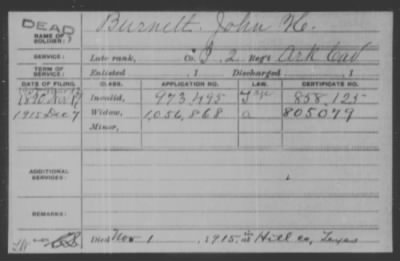 DEAD
NAME OF SOLDIER: Burnett, John H.
SERVICE: Late rank, Co. B, 2 Reg't Ark Cav
TERM OF SERVICE: Enlisted , 1 Discharged , 1
DATE OF FILING. CLASS. APPLICATION NO. LAW. CERTIFICATE NO.
1890 Nov 17 Invalid, 973,495 858,125
1915 Dec 7 Widow, 1,056,868 a 805079
Minor,
ADDITIONAL SERVICES:
REMARKS:
Died Nov 1, 1915, at Hill co, Texas